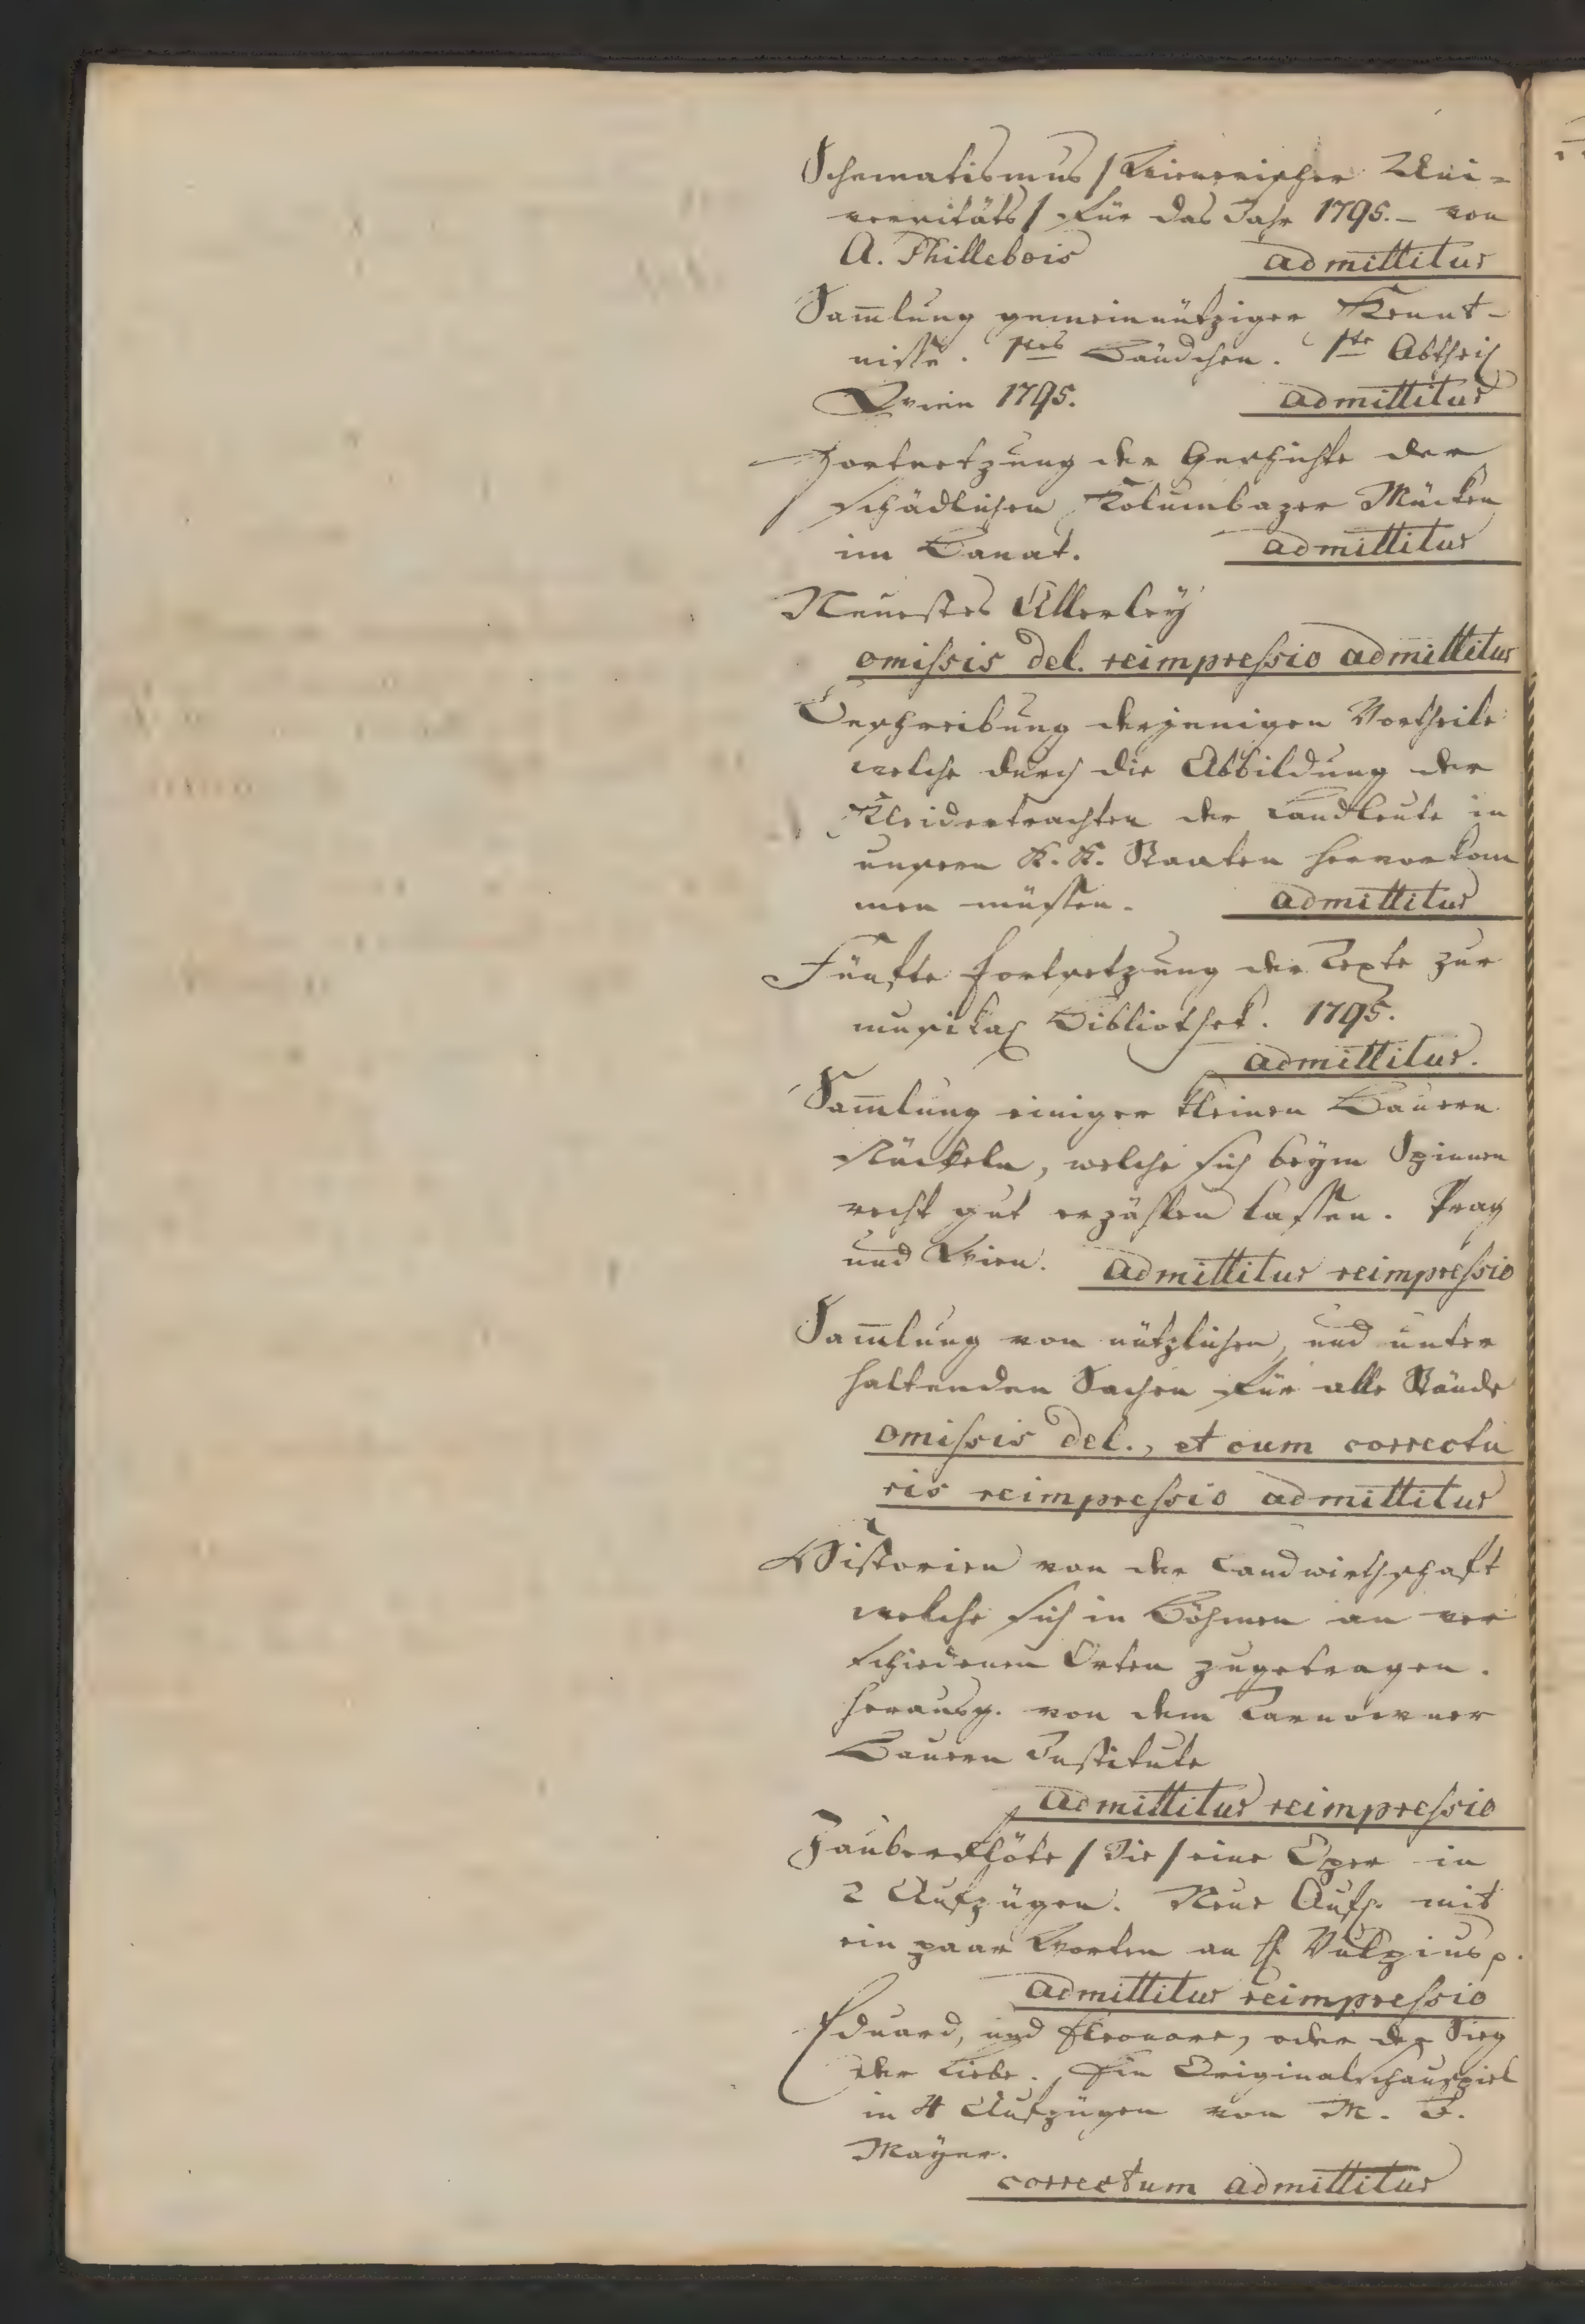 Schematismus / Wienerischer Uni-
versitäts / für das Jahr 1795. – von
A. Phillebois admittitur
Sam̅lung gemeinnütziger Kennt-
nisse. 1tes Bändchen. 1te Abtheil
Wien 1795. admittitur
Fortsetzung der Geschichte der
schädlichen Kolumbazer Mücken
im Banat. admittitur
Neuestes Allerley
omissis del. reimpressio admittitur
Beschreibung derjenigen Vortheile
welche durch die Abbildung der
Kleidertrachten der Landleute in
unsern K. K. Staaten hervorkom
men müssen. admittitur
Fünfte Fortsetzung der Texte zur
musikal Bibliothek. 1795.
admittitur.
Sam̅lung einiger kleinen Bauern
stückeln, welche sich beym Spinnen
recht gut erzählen lassen. Prag
und Wien. admittitur reimpressio
Sam̅lung von nützlichen, und unter
haltenden Sachen für alle Stände
omissis del., et cum correctu
ris reimpressio admittitur
Historien von der Landwirthschaft
welche sich in Böhmen an ver
schiedenen Orten zugetragen.
herausg. von dem Tarnowner
Bauern Institute
admittitur reimpressio
Zauberflöte / Die / eine Oper in
2 Aufzügen. Neue Aufl. mit
ein paar Worten an H. Vulpius p.
admittitur reimpressio
Eduard, und Eleonore, oder der Sieg
der Liebe. Ein Originalschauspiel
in 4 Aufzügen von M. J.
Mayer.
correctum admittitur